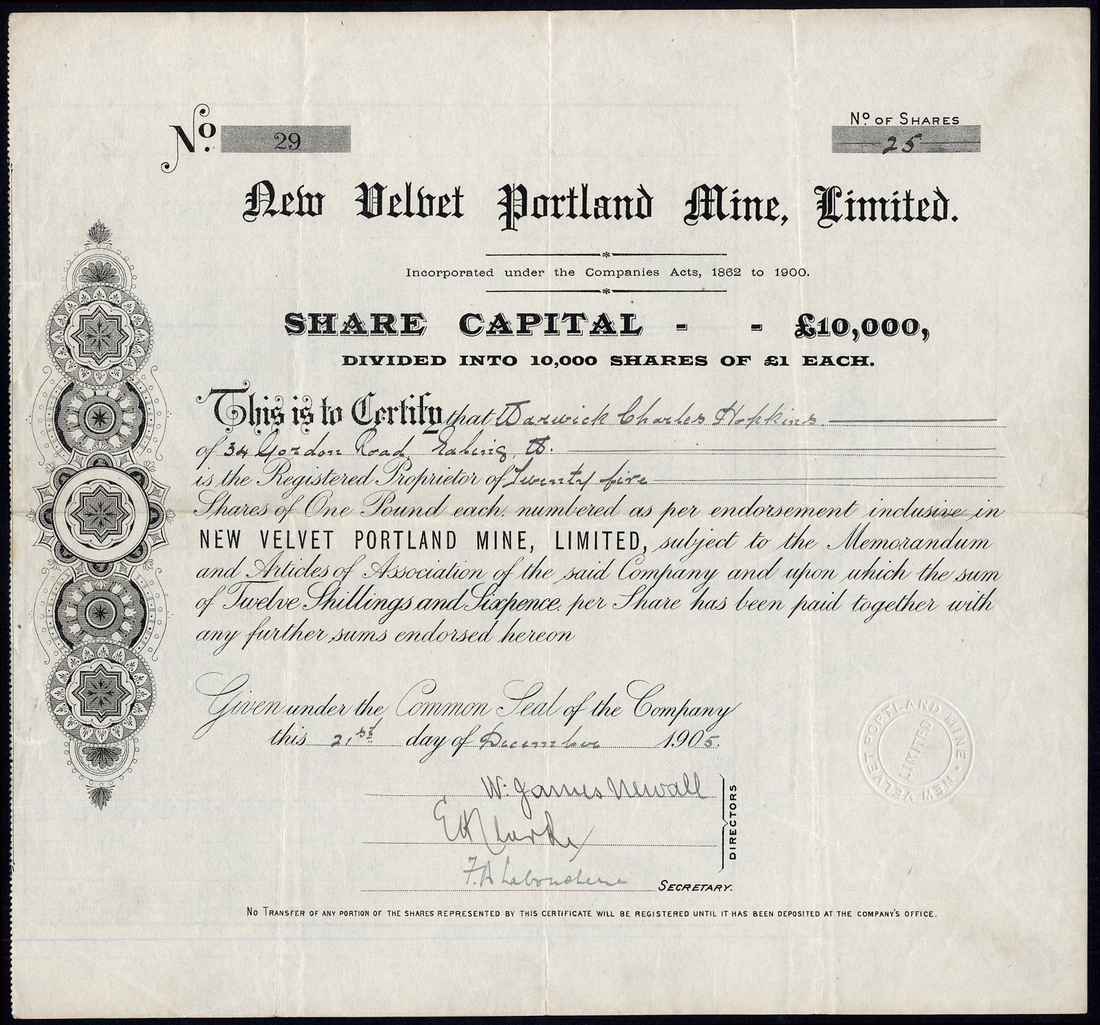 No. 29
No of Shares
25
New Velvet Portland Mine, Limited.
Incorporated under the Companies Acts, 1862 to 1900.
SHARE CAPITAL - - £10,000,
DIVIDED INTO 10,000 SHARES OF £1 EACH.
This is to Certify that Warwick Charles Hopkins
of 34 Gordon Road, Ealing, W.
is the Registered Proprietor of Twenty five
Shares of One Pound each numbered as per endorsement inclusive in
NEW VELVET PORTLAND MINE, LIMITED, subject to the Memorandum
and Articles of Association of the said Company and upon which the sum
of Twelve Shillings and Sixpence, per Share has been paid together with
any further sums endorsed hereon
Given under the Common Seal of the Company
this 21st day of December 1905.
NEW VELVET PORTLAND MINE
LIMITED
W. James Newall
E H Clarke
DIRECTORS
SECRETARY.
No Transfer of any portion of the shares represented by this certificate will be registered until it has been deposited at the company's office.